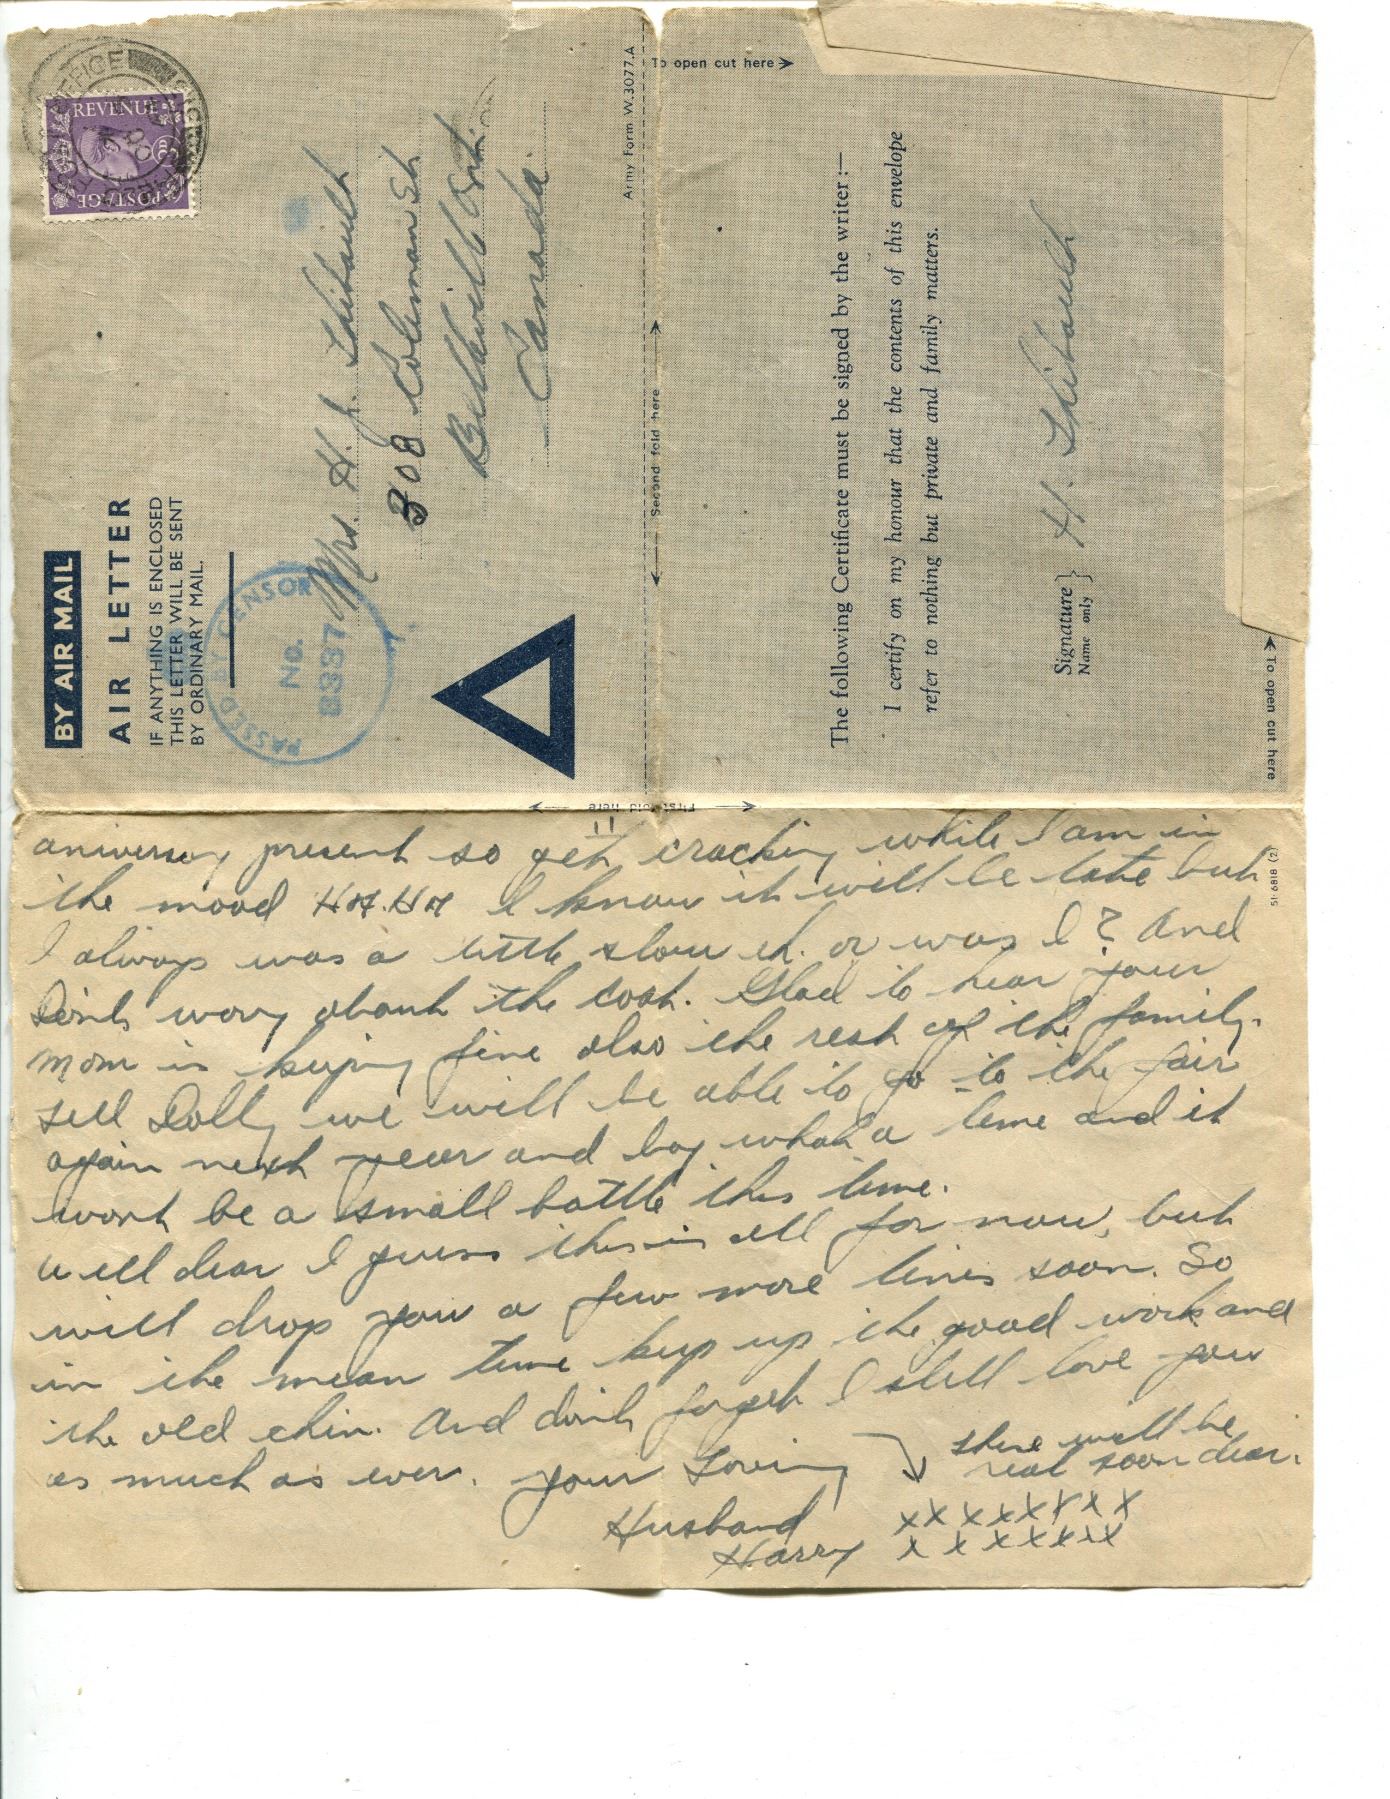 BY AIR MAIL
AIR LETTER
IF ANYTHING IS ENCLOSED
THIS LETTER WILL BE SENT
BY ORDINARY MAIL.
REVENUE
POSTAGE
PASSED BY CENSOR
No.
8337
Mrs. H. J. Thibault
308 Coleman St
Belleville Ont.
Canada.
Army Form W.3077.A
To open cut here
Second fold here
The following Certificate must be signed by the writer:—
I certify on my honour that the contents of this envelope
refer to nothing but private and family matters.
Signature
Name only
H. Thibault
To open cut here
First fold here
51-6818 (2)
aniversary present so get cracking while I am in
the mood HA.HA I know it will be late but
I always was a little slow eh. or was I? And
don't worry about the cost. Glad to hear your
Mom is keeping fine also the rest of the family.
Sell Dolly we will be able to go to the fair
again next year and boy what a time and it
wont be a small battle this time.
Well dear I guess this is all for now, but
will drop you a few more lines soon. So
in the mean time keep up the good work and
the old chin. And don't forget I still love you
as much as ever. Your Loving
Husband
Harry
these will be
real soon dear.
xx x x x x x x
x x x x x x x